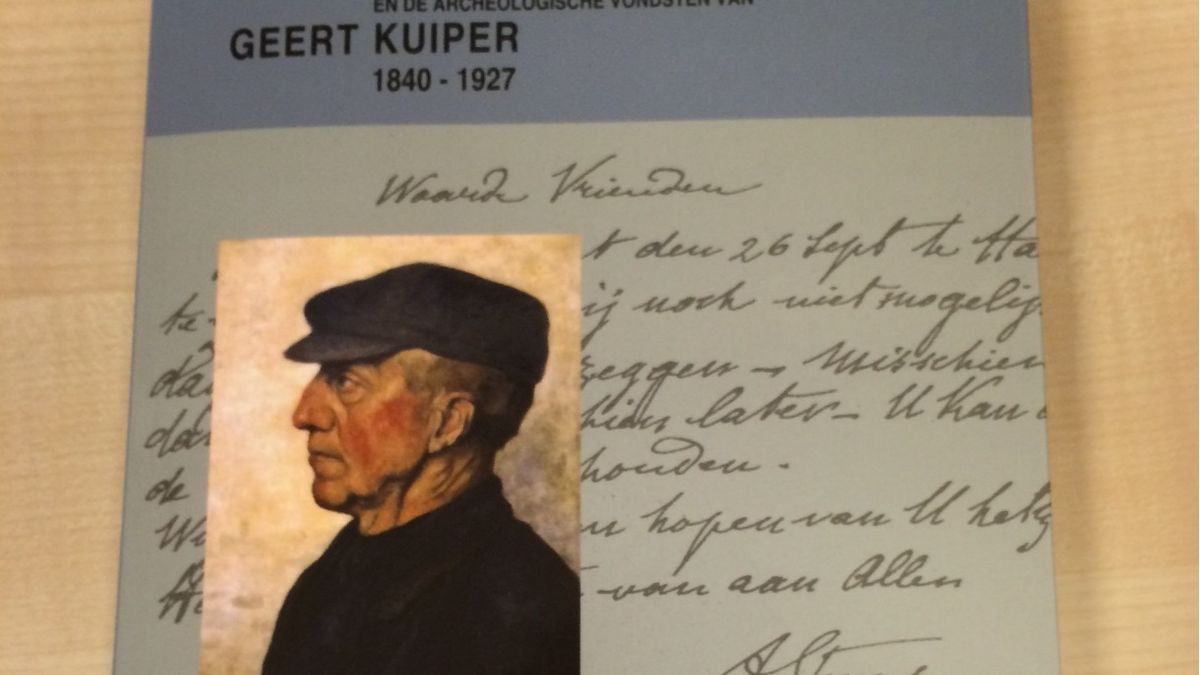 EN DE ARCHEOLOGISCHE VONDSTEN VAN
GEERT KUIPER
1840 - 1927
Waarde Vrienden
t den 26 Sept te Ha
te ij noch niet mogelij
da zeggen - Misschien
dan hien later - U Kan
de houden.
We en hopen van U het
van aan Allen